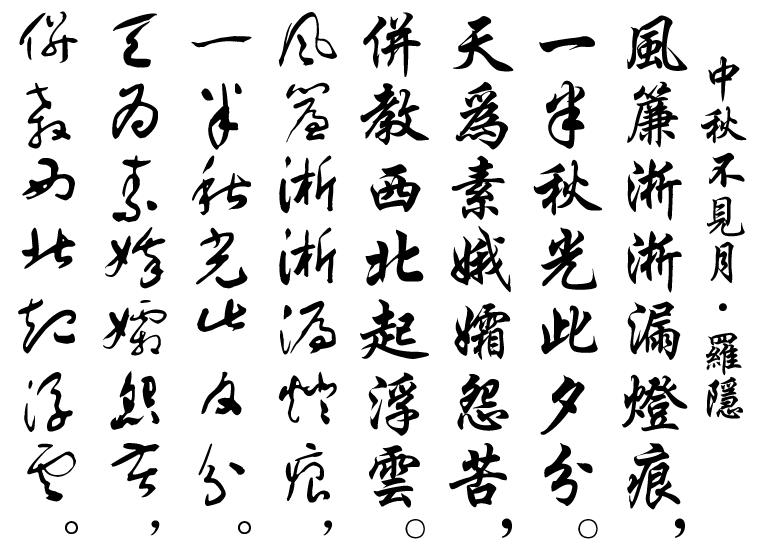 中秋不見月·羅隱
風簾淅淅漏燈痕，
一半秋光此夕分。
天爲素娥孀怨苦，
併教西北起浮雲。
風簾淅淅漏燈痕，
一半秋光此夕分。
天爲素娥孀怨苦，
併教西北起浮雲。